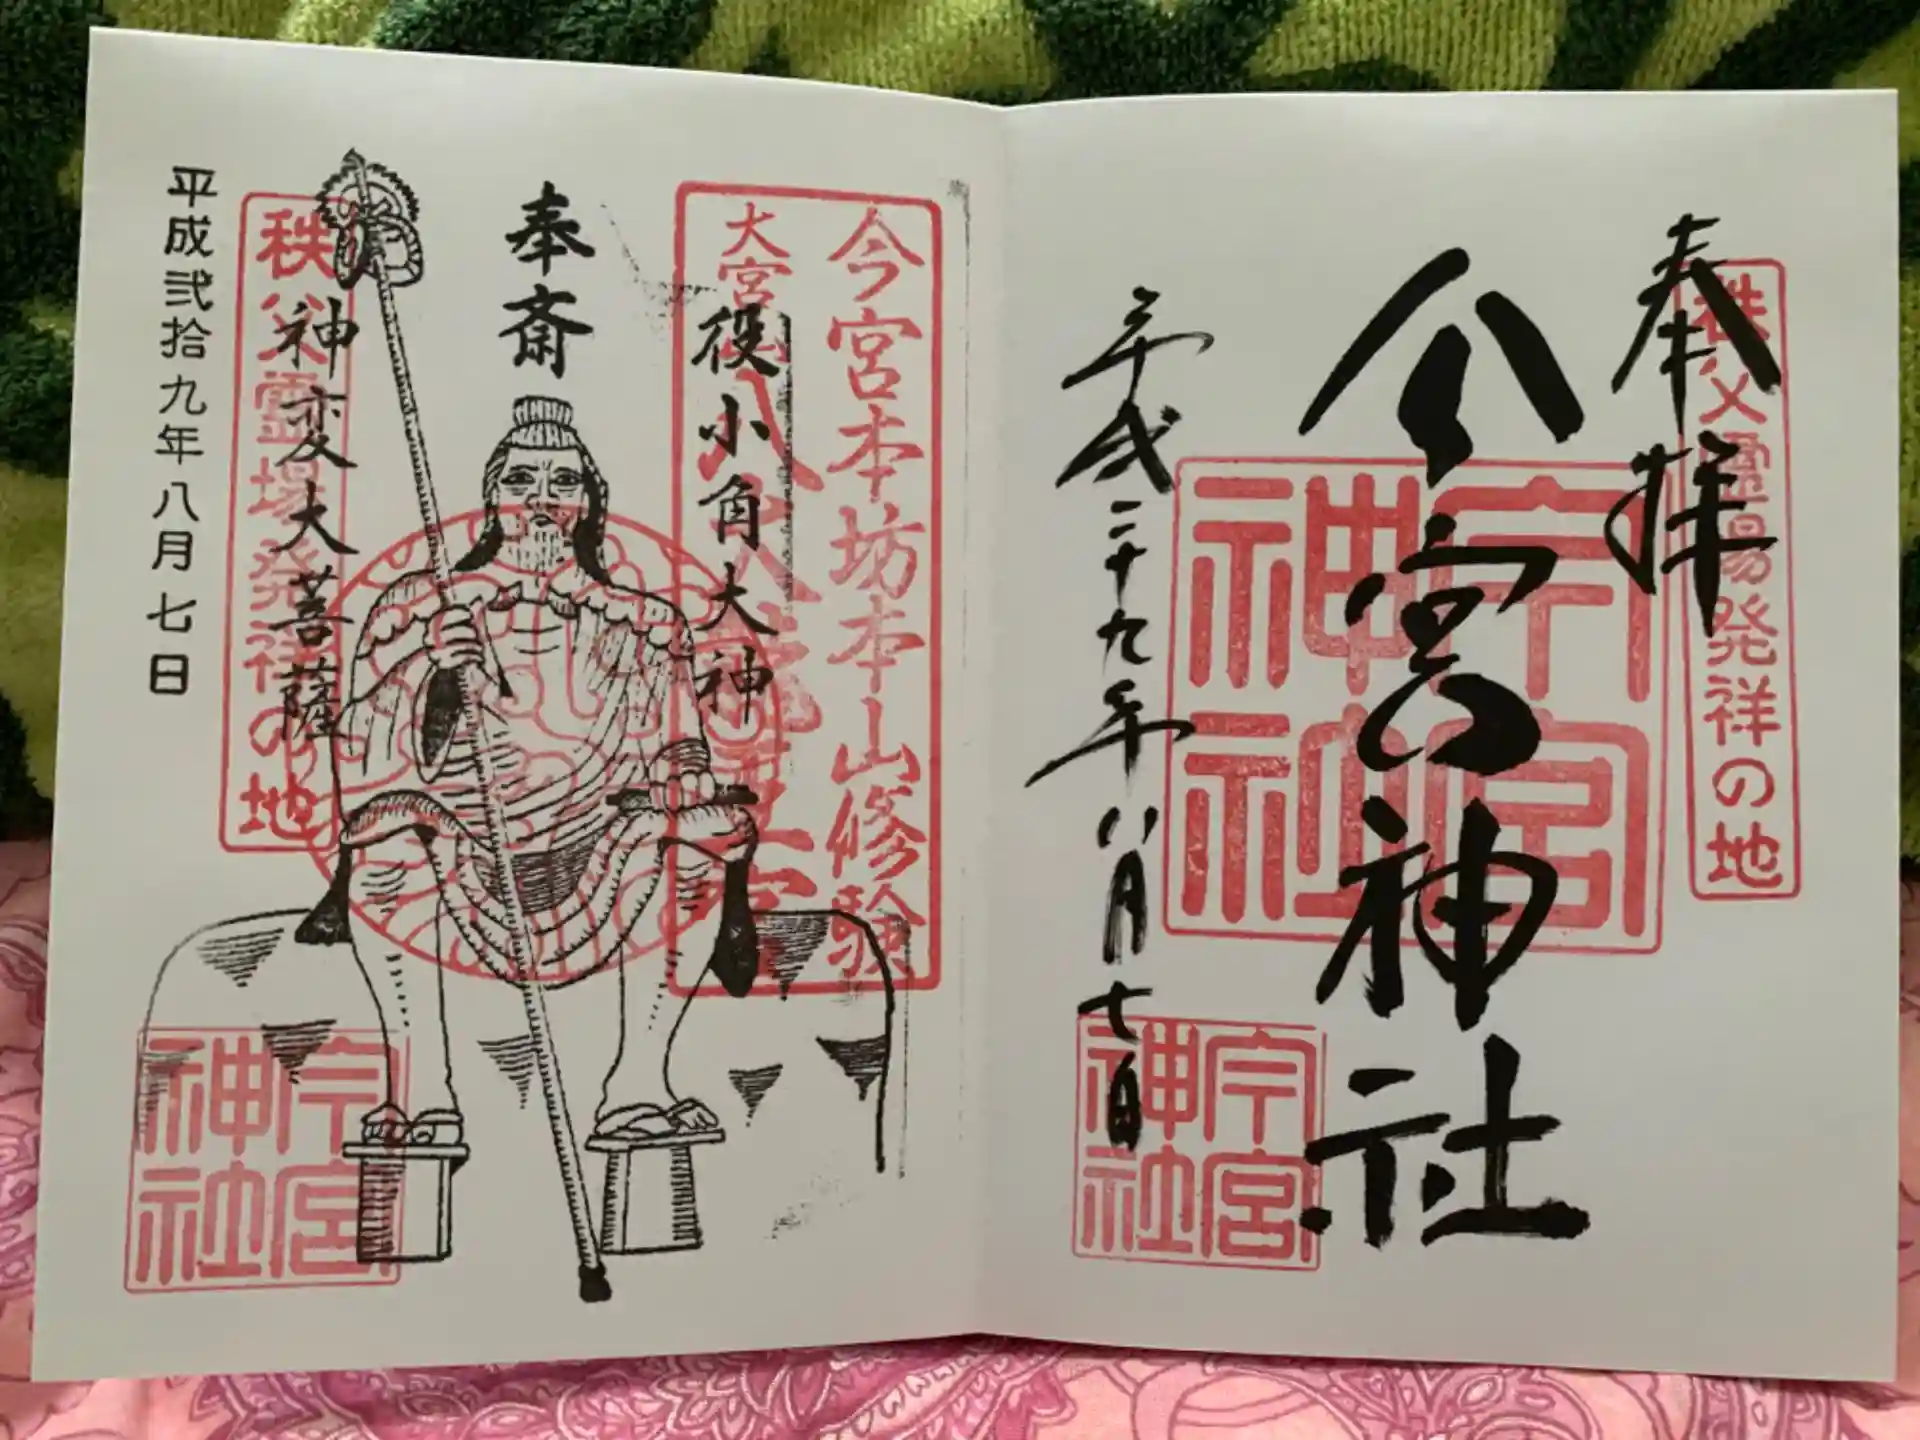 奉拝
秩父霊場発祥の地
今宮神社
今宮神社
平成二十九年八月七日
今宮神社
今宮本坊本山修験
大宮山八大龍王宮
役小角大神
奉斎
神変大菩薩
秩父霊場発祥の地
平成弐拾九年八月七日
今宮神社